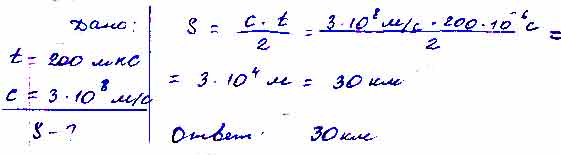 Дано:
t = 200 мкс
c = 3·10⁸ м/с
S - ?
S = c·t/2 = 3·10⁸ м/с · 200·10⁻⁶ с/2 =
= 3·10⁴ м = 30 км
Ответ: 30 км